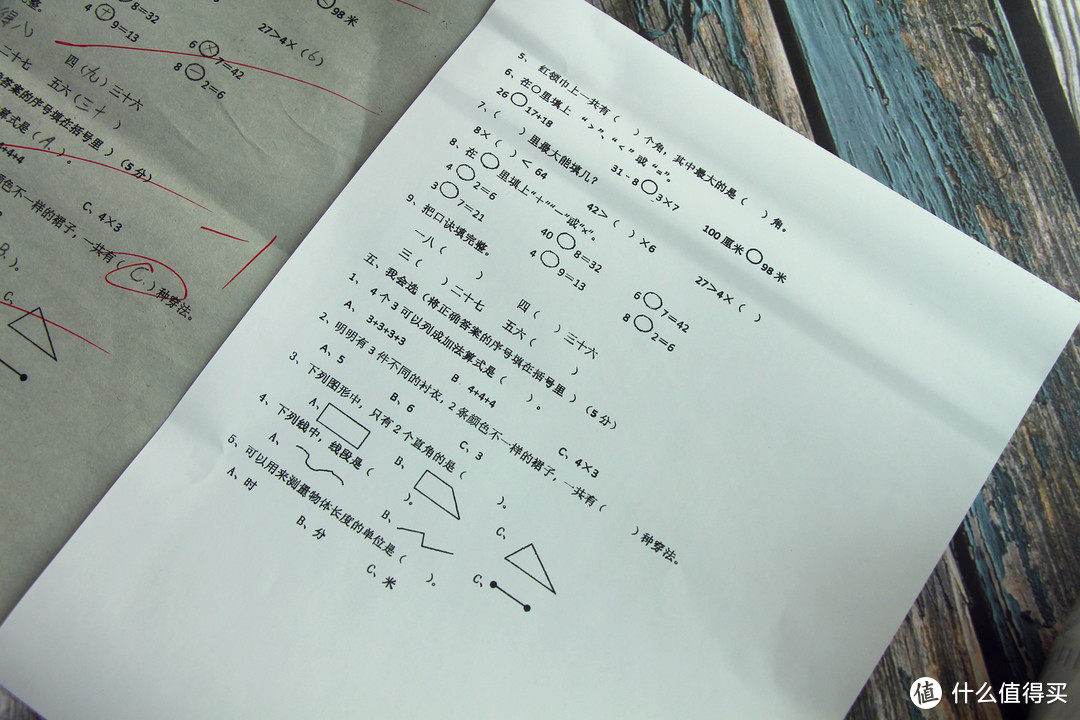 8=32
4 + 9=13
98米
6 × 7=42
27>4×(6)
8 − 2=6
二十七
四(九)三十六
五六(三十)
答案的序号填在括号里)(5分)
算式是(A)。
4+4+4
C、4×3
颜色不一样的裙子，一共有(C)种穿法。
B)。
C、
5、红领巾上一共有( )个角，其中最大的是( )角。
6、在○里填上“>”、“<”或“=”。
26○17+18 31-8○3×7 100厘米○98米
7、( )里最大能填几?
8×( )< 64 42>( )×6 27>4×( )
8、在○里填上“+”“—”或“×”。
4○2=6 40○8=32 6○7=42
3○7=21 4○9=13 8○2=6
9、把口诀填完整。
一八( ) 四( )三十六
三( )二十七 五六( )
五、我会选(将正确答案的序号填在括号里)(5分)
1、4个3可以列成加法算式是( )。
A、3+3+3+3 B 4+4+4 C、4×3
2、明明有3件不同的衬衣，2条颜色不一样的裙子，一共有( )种穿法。
A、5 B、6 C、3
3、下列图形中，只有2个直角的是( )。
A、 B、 C、
4、下列线中，线段是( )。
A、 B、 C、
5、可以用来测量物体长度的单位是( )。
A、时 B、分 C、米
值 什么值得买